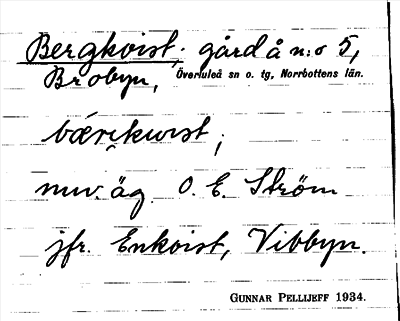 Bergkvist; gård å n:o 5,
Brobyn, Överluleå sn o. tg, Norrbottens län.
bærɩkwɩst;
nuv. äg O. E. Ström
jfr. Enkvist, Vibbyn.
GUNNAR PELLIJEFF 1934.